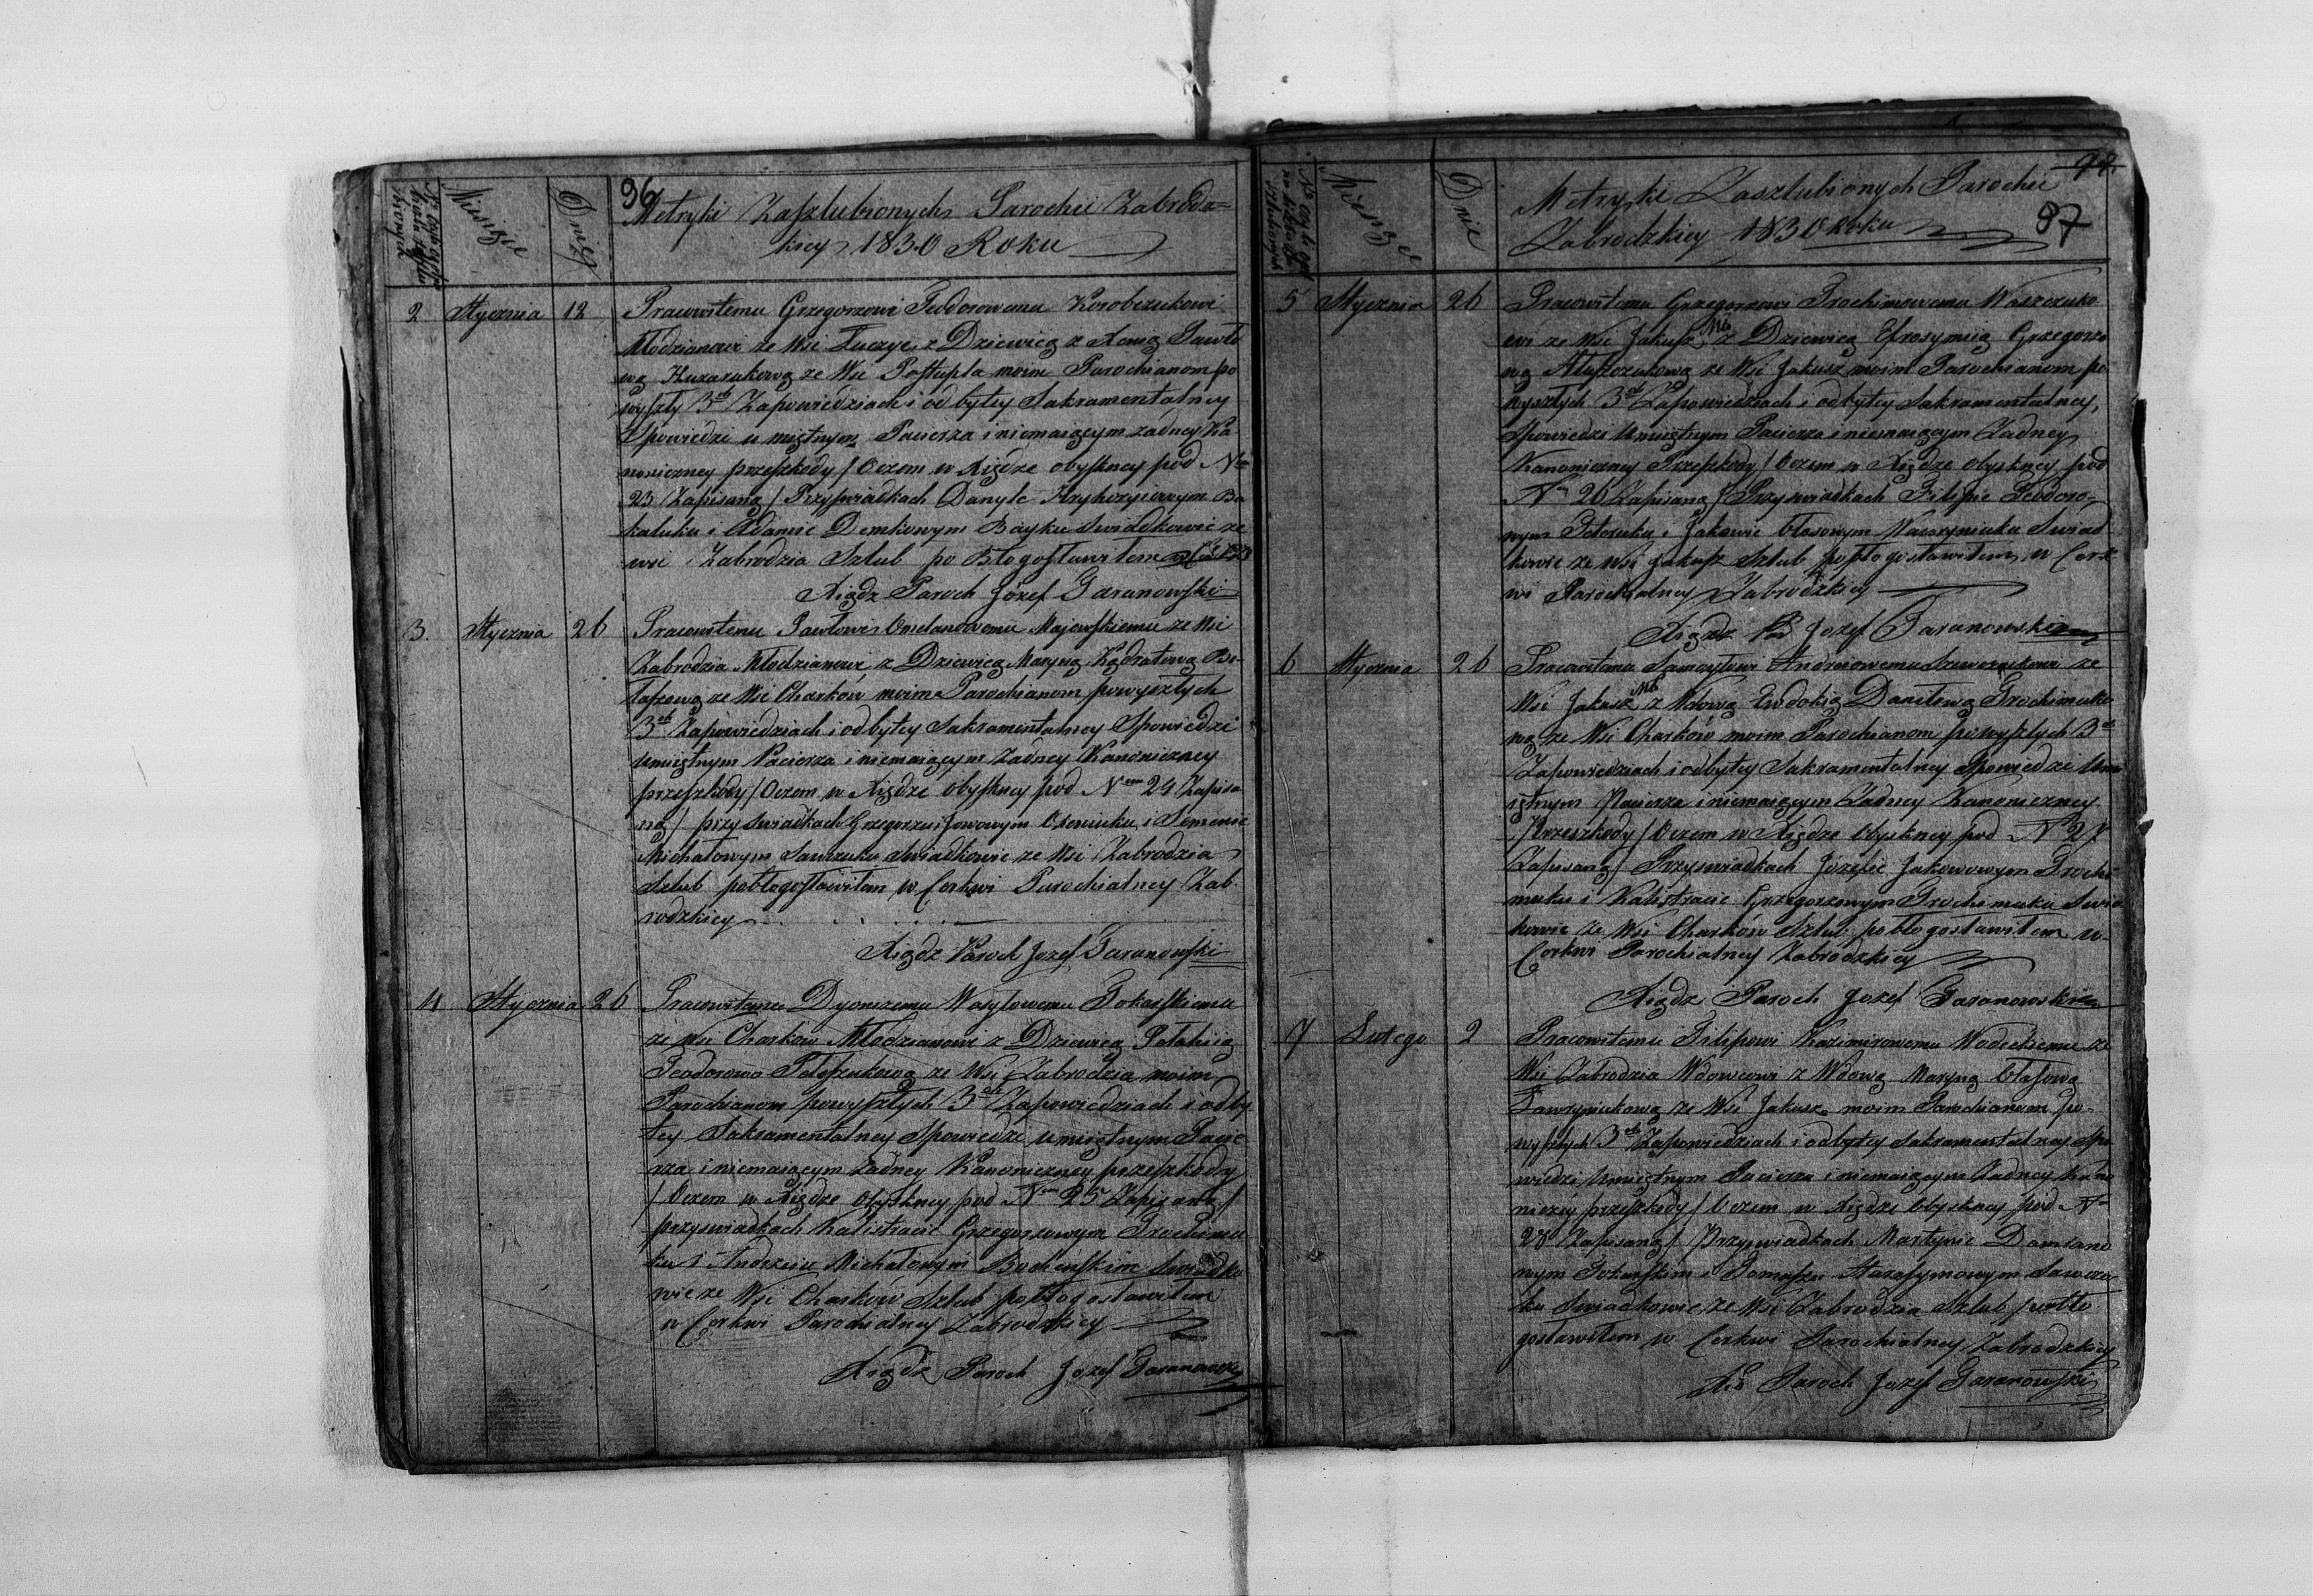 96
Miesiąc
Dnie
Metryki Zaszlubionych Parochii Zabrodz=
kiey 1830 Roku
2 Stycznia 12 Pracowitemu Grzegorzowi Teodorowemu Korobczukowi
Młodzianowi ze Wsi Łuczyc z Dziewicą z Xenią Pawło
wą Huzarukową ze Wsi Postupla moim Parochianom po
wyszły 3ch Zapowiedziach i odbytey Sakramentalney
Spowiedzi umiętnym Pacierza i niemaiącym żadney Ka
noniczney przeszkody / Oczem w Xiędze obyskney pod Nem
23 Zapisaną / Przyświadkach Danyle Hryhoryiowym Ba
kaluku i Adamie Demkowym Bayku Swiadkowie ze
wsi Zabrodzia Szlub po Błogosławiłem
Xiądz Paroch Józef Taranowski
3. Stycznia 26 Pracowitemu Pawłowi Omelanowemu Majewskiemu ze Wsi
Zabrodzia Młodzianowi z Dziewicą Maryną Kądratową
ze Wsi Charków moim Parochianom powyszłych
3ch Zapowiedziach i odbytey Sakramentalney Spowiedzi
umiętnym Pacierza i niemaiącym żadney Kanoniczney
przeszkody / Oczem w Xiędze obyskney pod Nem 24 Zapisa
ną / przy swiadkach Grzegorzu Jowowym i Semenie
Michałowym Sawczuku Swiadkowie ze Wsi Zabrodzia
Szlub pobłogosławiłem w Cerkwi Parochialney Zab
rodzkiey
Xiądz Paroch Jozef Taranowski
4 Stycznia 26 Pracowitemu Dyonizemu Wasylowemu Tokarskiemu
ze Wsi Charków Młodzianowi z Dziewicą Pelahią
Teodorowo ze Wsi Zabrodzia moim
Parochianom powyszłych 3ch Zapowiedziach i odby
tey Sakramentalney Spowiedzi umiętnym Pacie
rza i niemaiącym żadney Kanoniczney przeszkody
/ Oczem w Xiędze Obyskney pod Nem 25 Zapisaną /
przyswiadkach Kalistracie Grzegorzowym Trochimu
ku i Andrzeiu Michałowym Bocheńskim Swiadko
wie ze Wsi Charków Szlub pobłogosławiłem
w Cerkwi Parochialney Zabrodzkiey
Xiądz Paroch Jozef Taranowski
97
Miesiące
Dnie
Metryki Zaszlubionych Parochii
Zabrodzkiey 1830 Roku
5 Stycznia 26 Pracowitemu Grzegorzowi Trochimowemu Waszczuko
wi ze Wsi Jakusz z Dziewicą Efrosynią Grzegorzo
wą ze Wsi Jakusz moim Parochianom po
wyszłych 3ch Zapowiedziach i odbytey Sakramentalney
Spowiedzi Umiętnym Pacierza i niemaiącym Żadney
Kanoniczney Przeszkody / Oczem w Xiędze Obyskney pod
Nm 26 Zapisaną / Przyswiadkach Filipie Teodoro=
wym i Jakowie Własowym Wawryniuku Swiad
kowie ze Wsi Jakusz Szlub pobłogosławiłem w Cerk
wi Parochialney Zabrodzkiey
Xiądz Par Jozef Taranowski
6 Stycznia 26 Pracowitemu Samoyłowi Andreiowemu Szewczukowi ze
Wsi Jakusz z Wdową Ewdokią Daniłową Trochimuko
wą ze Wsi Charków moim Parochianom powyszłych 3ch
Zapowiedziach i odbytey Sakramentalney Spowiedzi Um
iętnym Pacierza i niemaiącym Żadney Kanoniczney
Przeszkody / Oczem w Xiędze Obyskney pod N 27
Zapisaną / Przyswiadkach Józefie Jakowowym Trochi
muku i Kalistracie Grzegorzowym Trochimuku Swia
kowie ze Wsi Charków Szlub pobłogosławiłem w
Cerkwi Parochialney Zabrodzkiey
Xiądz Paroch Jozef Taranowski
7 Lutego 2 Pracowitemu Filipowi Kazimirowemu Wodeckiemu ze
Wsi Zabrodzia Wdowcowi z Wdową Maryną Własową
Ławryniukową ze Wsi Jakusz moim Parochianom po=
wyszłych 3ch Zapowiedziach i odbytey Sakramentalney Spo
wiedzi Umiętnym Pacierza i niemaiącym Żadney Kano
niczney przeszkody / Oczem w Xiędze Obyskney pod Nm
28 Zapisaną / Przyswiadkach Martynie Damiano
wym Tokarskim i Tomaszu Harasymowym Sawczu
ku Swiadkowie ze Wsi Zabrodzia Szlub pobło
gosławiłem w Cerkwi Parochialney Zabrodzkiey
Xiądz Paroch Jozef Taranowski